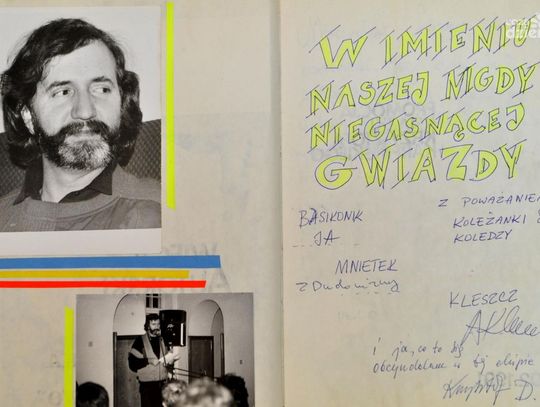 W IMIENIU
NASZEJ NIGDY
NIEGASNĄCEJ
GWIAZDY
Z POWAŻANIEM
KOLEŻANKI &
KOLEDZY
BASIKONIK
JA
MNIETEK
KLESZCZ
i ja, co to się
w tej ekipie
Krzysztof D.